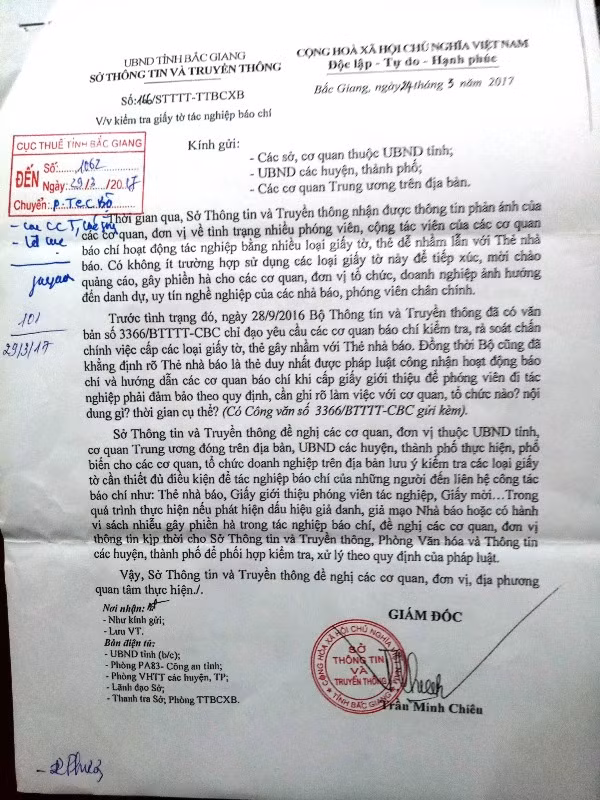 UBND TỈNH BẮC GIANG
SỞ THÔNG TIN VÀ TRUYỀN THÔNG
CỘNG HOÀ XÃ HỘI CHỦ NGHĨA VIỆT NAM
Độc lập - Tự do - Hạnh phúc
Số:166/STTTT-TTBCXB
V/v kiểm tra giấy tờ tác nghiệp báo chí
Bắc Giang, ngày 24 tháng 3 năm 2017
CỤC THUẾ TỈNH BẮC GIANG
ĐẾN
Số: 1062
Ngày: 29/3/2017
Chuyển:
Kính gửi:
- Các sở, cơ quan thuộc UBND tỉnh;
- UBND các huyện, thành phố;
- Các cơ quan Trung ương trên địa bàn.
Thời gian qua, Sở Thông tin và Truyền thông nhận được thông tin phản ánh của
các cơ quan, đơn vị về tình trạng nhiều phóng viên, cộng tác viên của các cơ quan
báo chí hoạt động tác nghiệp bằng nhiều loại giấy tờ, thẻ dễ nhầm lẫn với Thẻ nhà
báo. Có không ít trường hợp sử dụng các loại giấy tờ này để tiếp xúc, mời chào
quảng cáo, gây phiền hà cho các cơ quan, đơn vị tổ chức, doanh nghiệp ảnh hưởng
đến danh dự, uy tín nghề nghiệp của các nhà báo, phóng viên chân chính.
101
29/3/17
Trước tình trạng đó, ngày 28/9/2016 Bộ Thông tin và Truyền thông đã có văn
bản số 3366/BTTTT-CBC chỉ đạo yêu cầu các cơ quan báo chí kiểm tra, rà soát chấn
chỉnh việc cấp các loại giấy tờ, thẻ gây nhầm với Thẻ nhà báo. Đồng thời Bộ cũng đã
khẳng định rõ Thẻ nhà báo là thẻ duy nhất được pháp luật công nhận hoạt động báo
chí và hướng dẫn các cơ quan báo chí khi cấp giấy giới thiệu để phóng viên đi tác
nghiệp phải đảm bảo theo quy định, cần ghi rõ làm việc với cơ quan, tổ chức nào? nội
dung gì? thời gian cụ thể? (Có Công văn số 3366/BTTTT-CBC gửi kèm).
Sở Thông tin và Truyền thông đề nghị các cơ quan, đơn vị thuộc UBND tỉnh,
cơ quan Trung ương đóng trên địa bàn, UBND các huyện, thành phố thực hiện, phổ
biến cho các cơ quan, tổ chức doanh nghiệp trên địa bàn lưu ý kiểm tra các loại giấy
tờ cần thiết đủ điều kiện để tác nghiệp báo chí của những người đến liên hệ công tác
báo chí như: Thẻ nhà báo, Giấy giới thiệu phóng viên tác nghiệp, Giấy mời…Trong
quá trình thực hiện nếu phát hiện dấu hiệu giả danh, giả mạo Nhà báo hoặc có hành
vi sách nhiễu gây phiền hà trong tác nghiệp báo chí, đề nghị các cơ quan, đơn vị
thông tin kịp thời cho Sở Thông tin và Truyền thông, Phòng Văn hóa và Thông tin
các huyện, thành phố để phối hợp kiểm tra, xử lý theo quy định của pháp luật.
Vậy, Sở Thông tin và Truyền thông đề nghị các cơ quan, đơn vị, địa phương
quan tâm thực hiện./.
Nơi nhận:
- Như kính gửi;
- Lưu VT.
Bản điện tử:
- UBND tỉnh (b/c);
- Phòng PA83- Công an tỉnh;
- Phòng VHTT các huyện, TP;
- Lãnh đạo Sở;
- Thanh tra Sở; Phòng TTBCXB.
GIÁM ĐỐC
CỘNG HÒA XÃ HỘI CHỦ NGHĨA VIỆT NAM
SỞ
THÔNG TIN
VÀ
TRUYỀN THÔNG
TỈNH BẮC GIANG
Trần Minh Chiêu